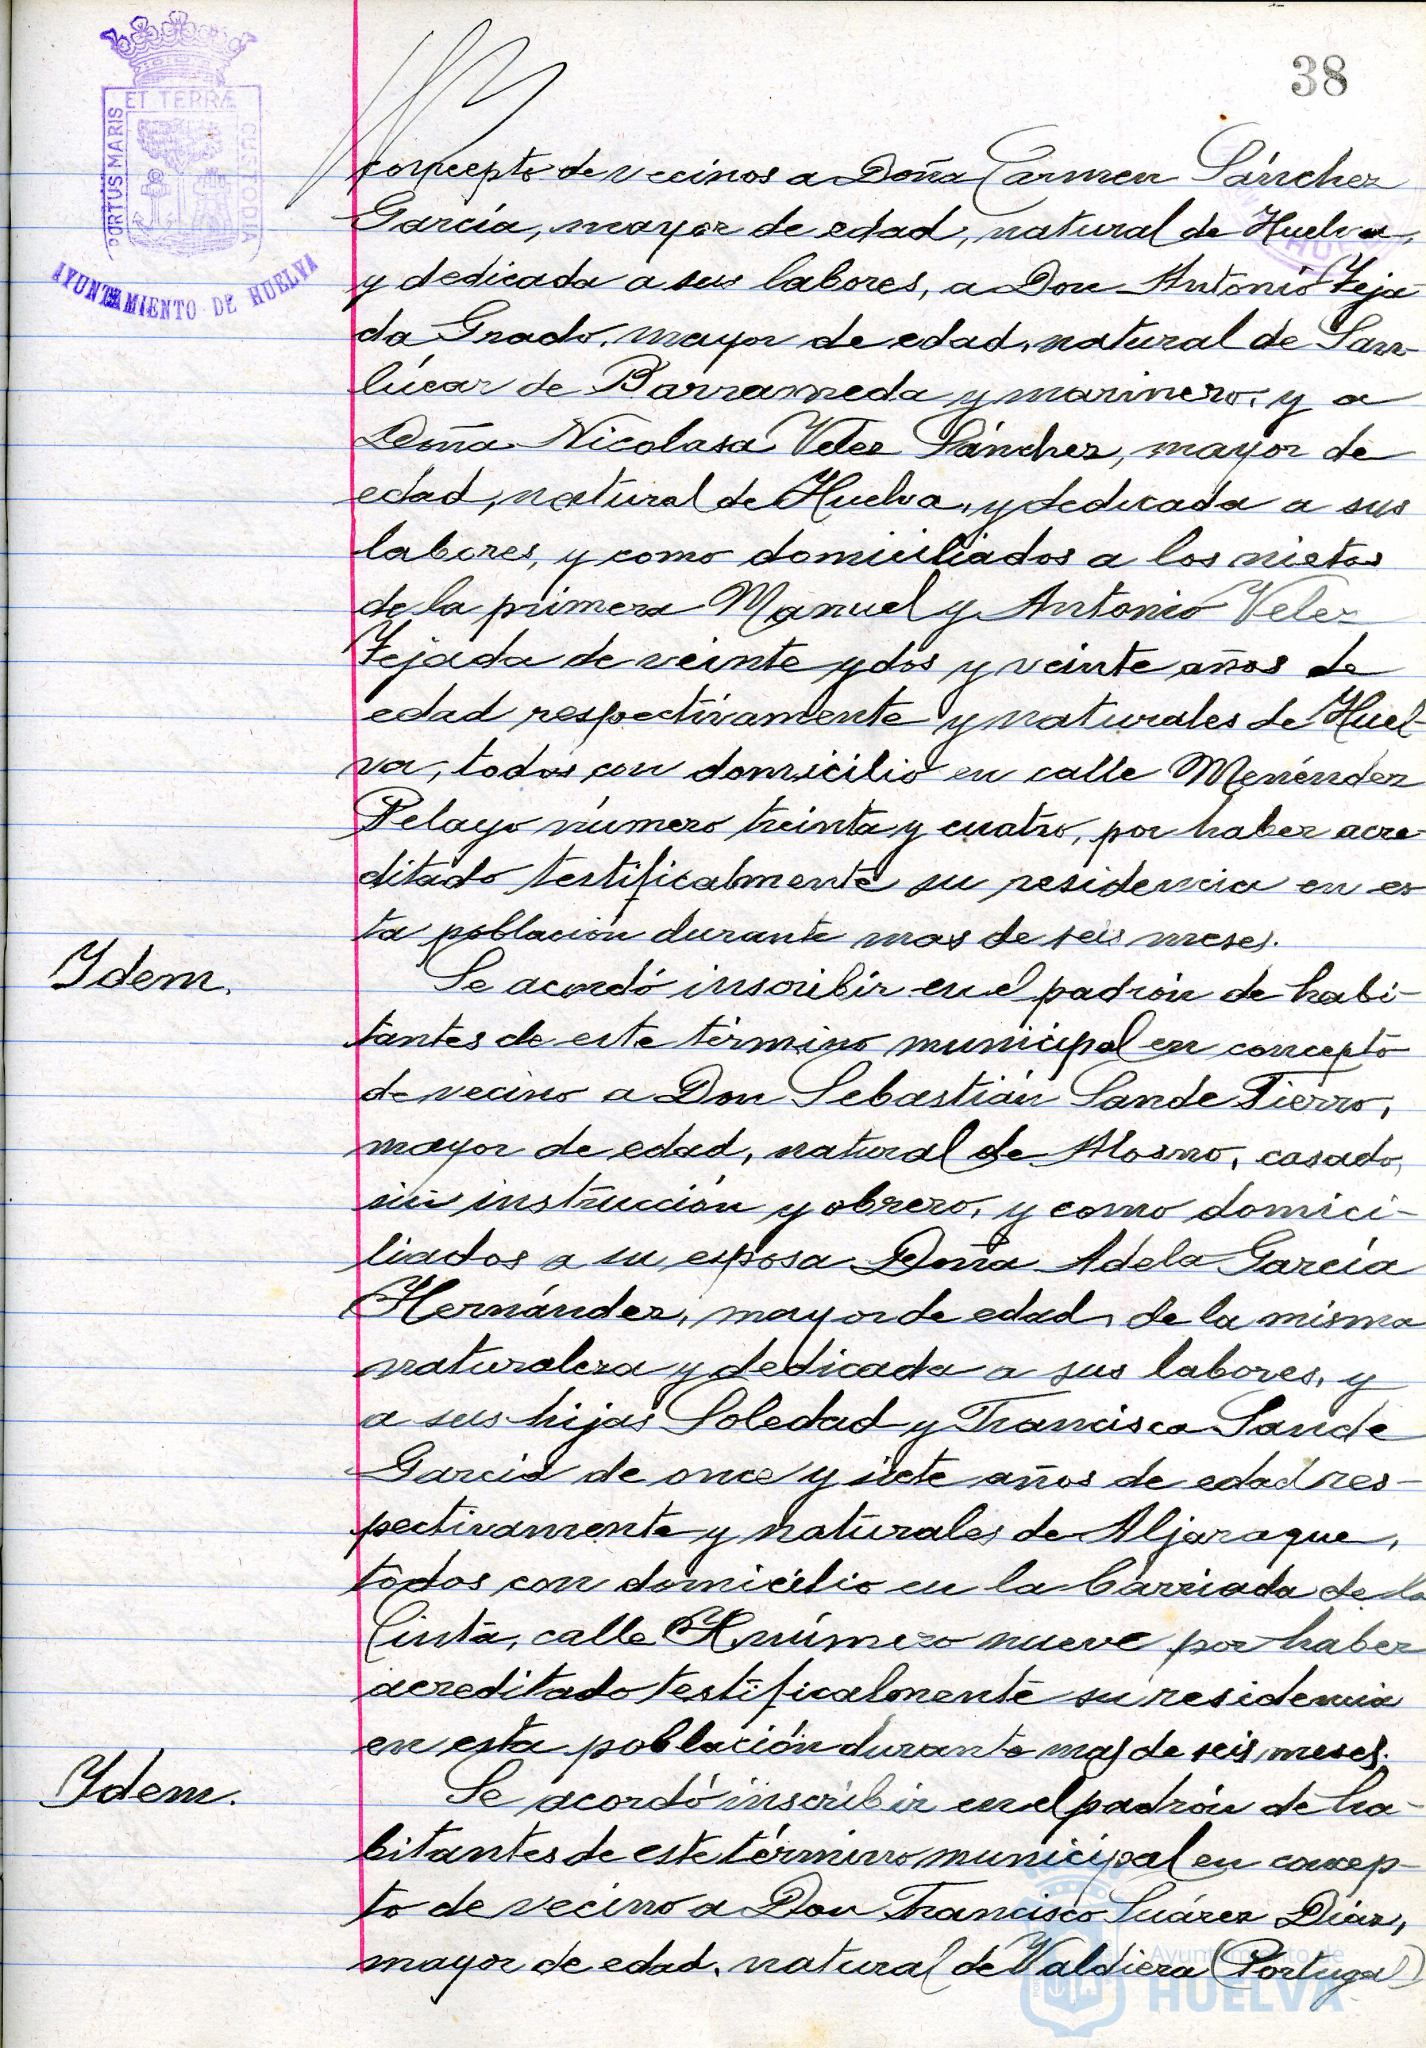 38
PORTUS MARIS
ET TERRÆ
CUSTODIA
AYUNTAMIENTO DE HUELVA
concepto de vecinos a Doña Carmen Sánchez
García, mayor de edad, natural de Huelva,
y dedicada a sus labores, a Don Antonio Teja-
da Grado, mayor de edad, natural de San-
lúcar de Barrameda y marinero, y a
Doña Nicolasa Velez Sánchez, mayor de
edad, natural de Huelva, y dedicada a sus
labores, y como domiciliados a los nietos
de la primera Manuel y Antonio Velez
Tejada de veinte y dos y veinte años de
edad respectivamente y naturales de Huel-
va, todos con domicilio en calle Menéndez
Pelayo número treinta y cuatro, por haber acre-
ditado testificalmente su residencia en es
ta población durante mas de seis meses.
Ydem.
Se acordó inscribir en el padrón de habi-
tantes de este término municipal en concepto
de vecino a Don Sebastián Sande Fierro,
mayor de edad, natural de Alosno, casado,
sin instrucción y obrero, y como domici-
liados a su esposa Doña Adela García
Hernández, mayor de edad, de la misma
naturaleza y dedicada a sus labores, y
a sus hijas Soledad y Francisca Sande
García de once y siete años de edad res-
pectivamente y naturales de Aljaraque,
todos con domicilio en la barriada de la
Cinta, calle H número nueve por haber
acreditado testificalmente su residencia
en esta población durante mas de seis meses.
Ydem.
Se acordó inscribir en el padrón de ha-
bitantes de este término municipal en concep-
to de vecino a Don Francisco Suárez Díaz,
mayor de edad, natural de Valdiera (Portugal)
Ayuntamiento de
HUELVA